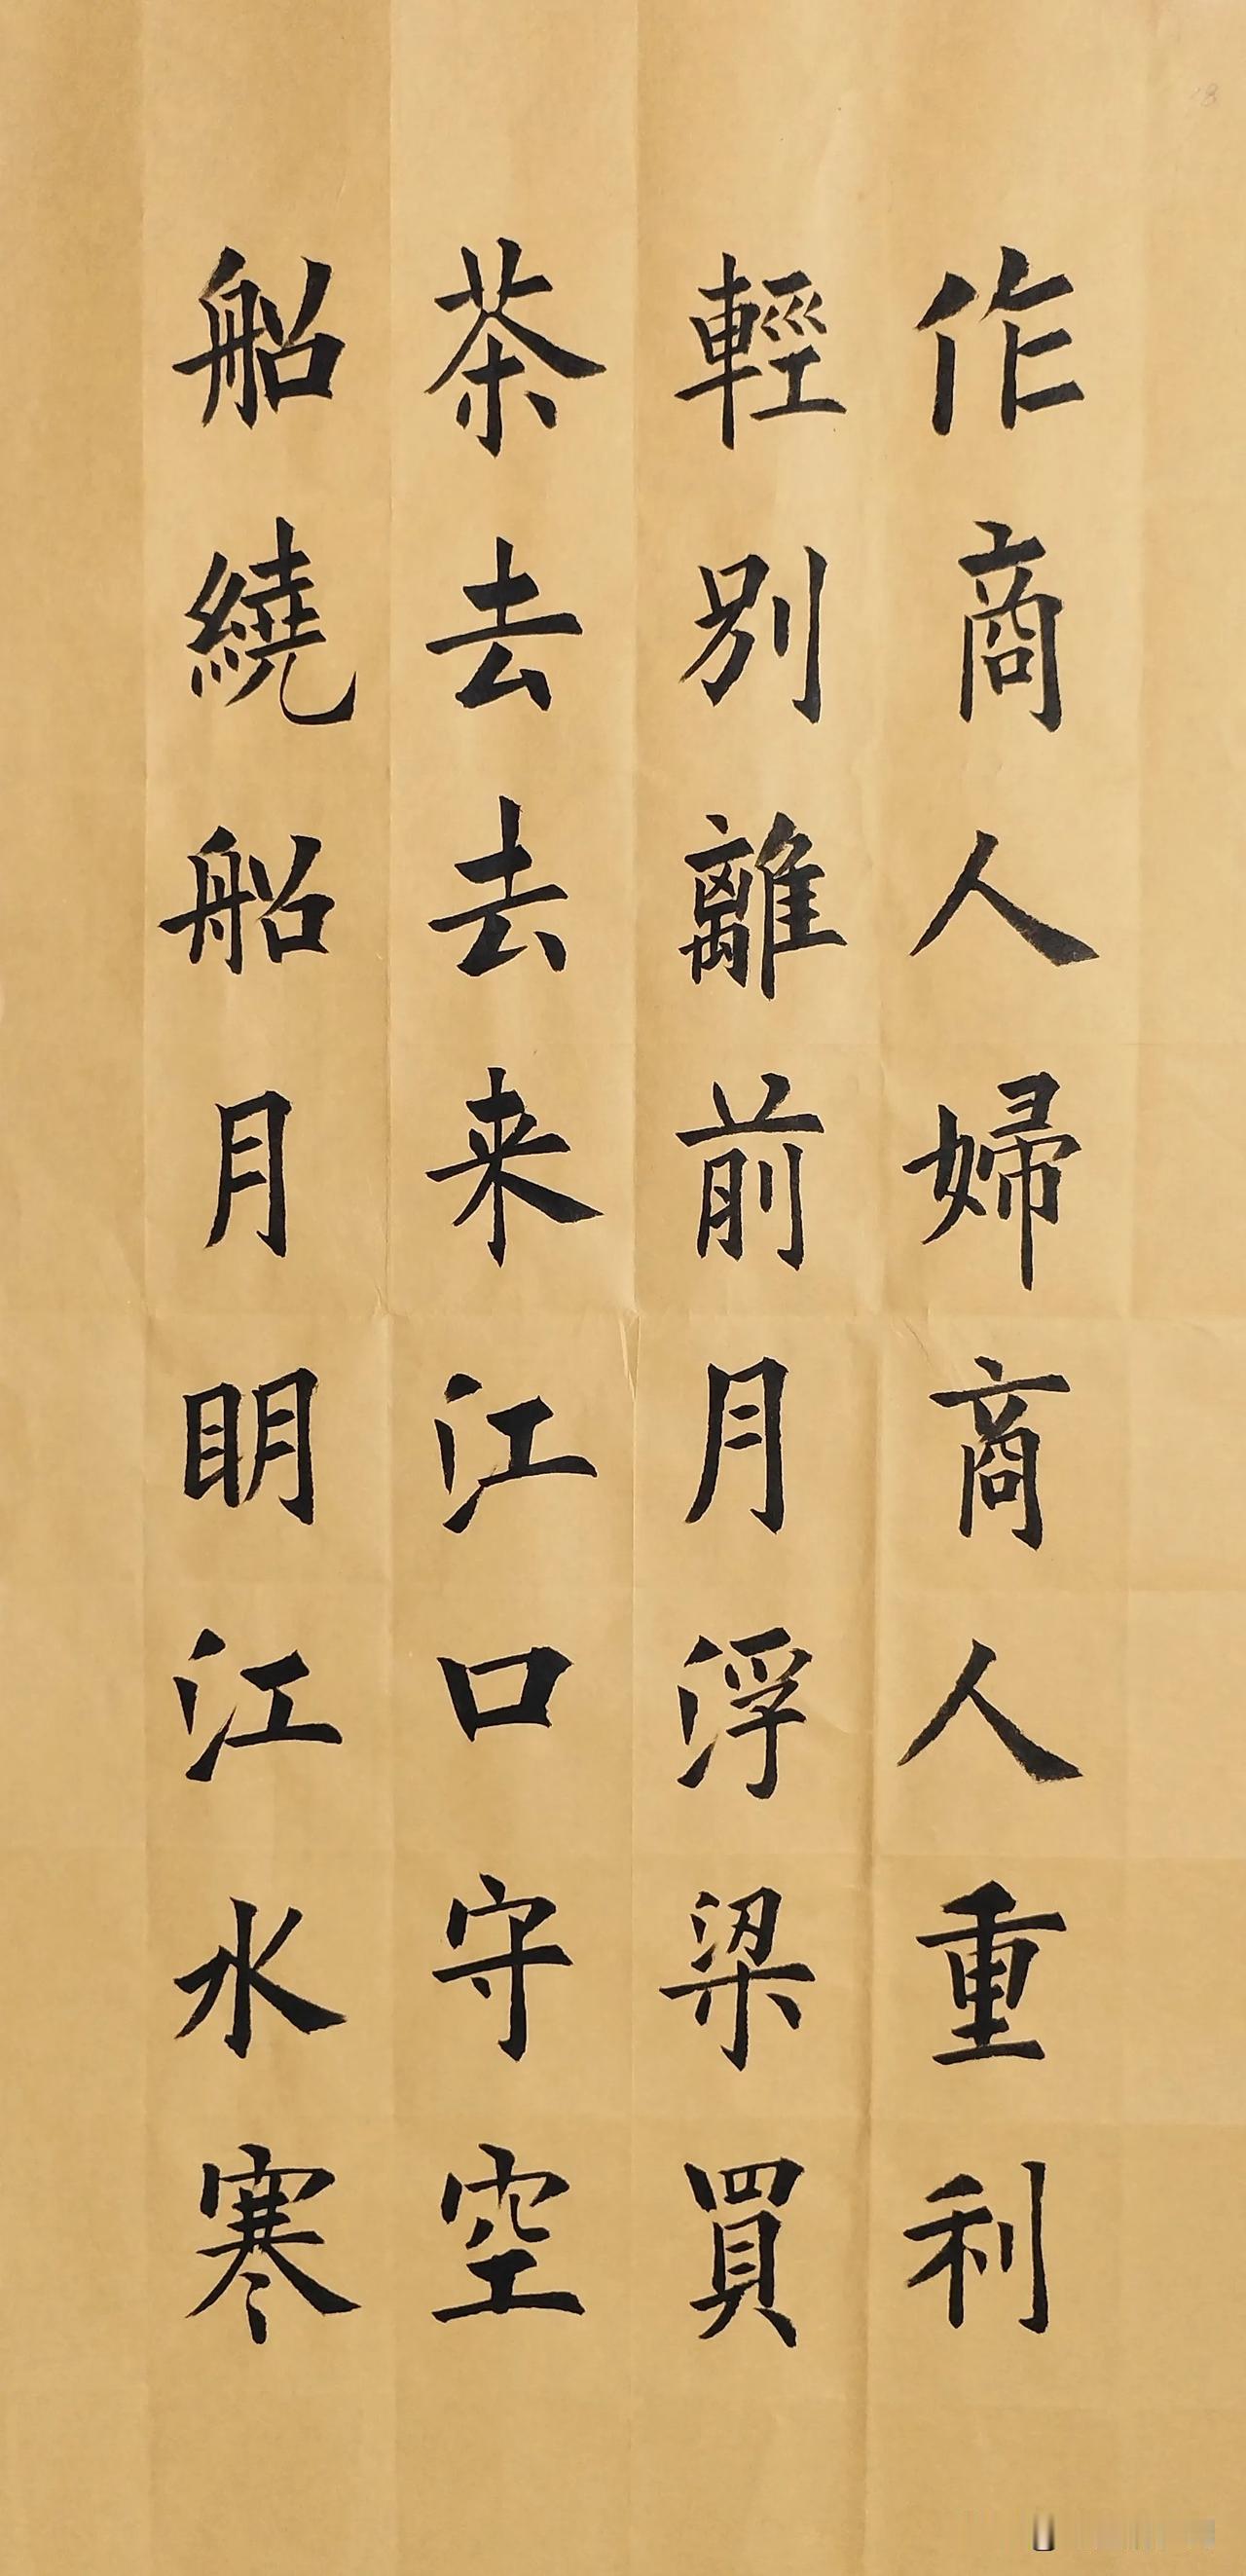 作商人婦商人重利
輕別離前月浮梁買
茶去去来江口守空
船繞船月明江水寒